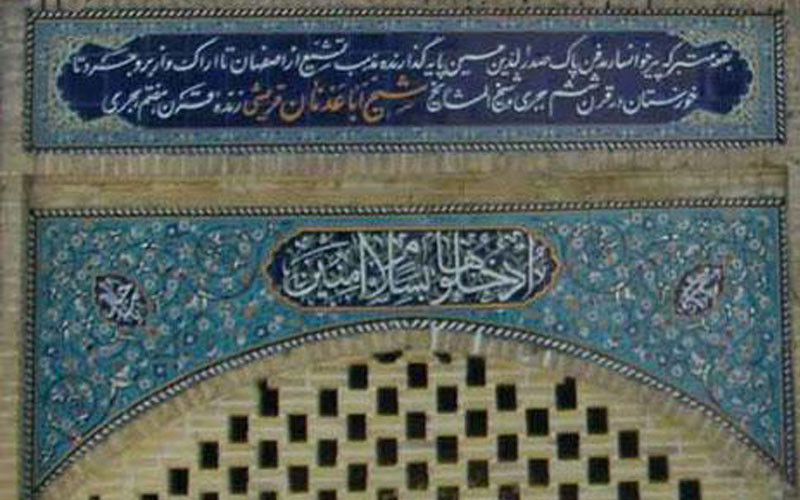 بقعه متبرکه پیر خوانسار مدفن پاک صدرالدین حسین پایه گذارنده مذهب تشیع از اصفهان تا اراک و از بروجرد تا
خوزستان در قرن ششم هجری و شیخ المشایخ شیخ اباعدنان قریشی زنده قرن هفتم هجری
ادخلوها بسلام امنین